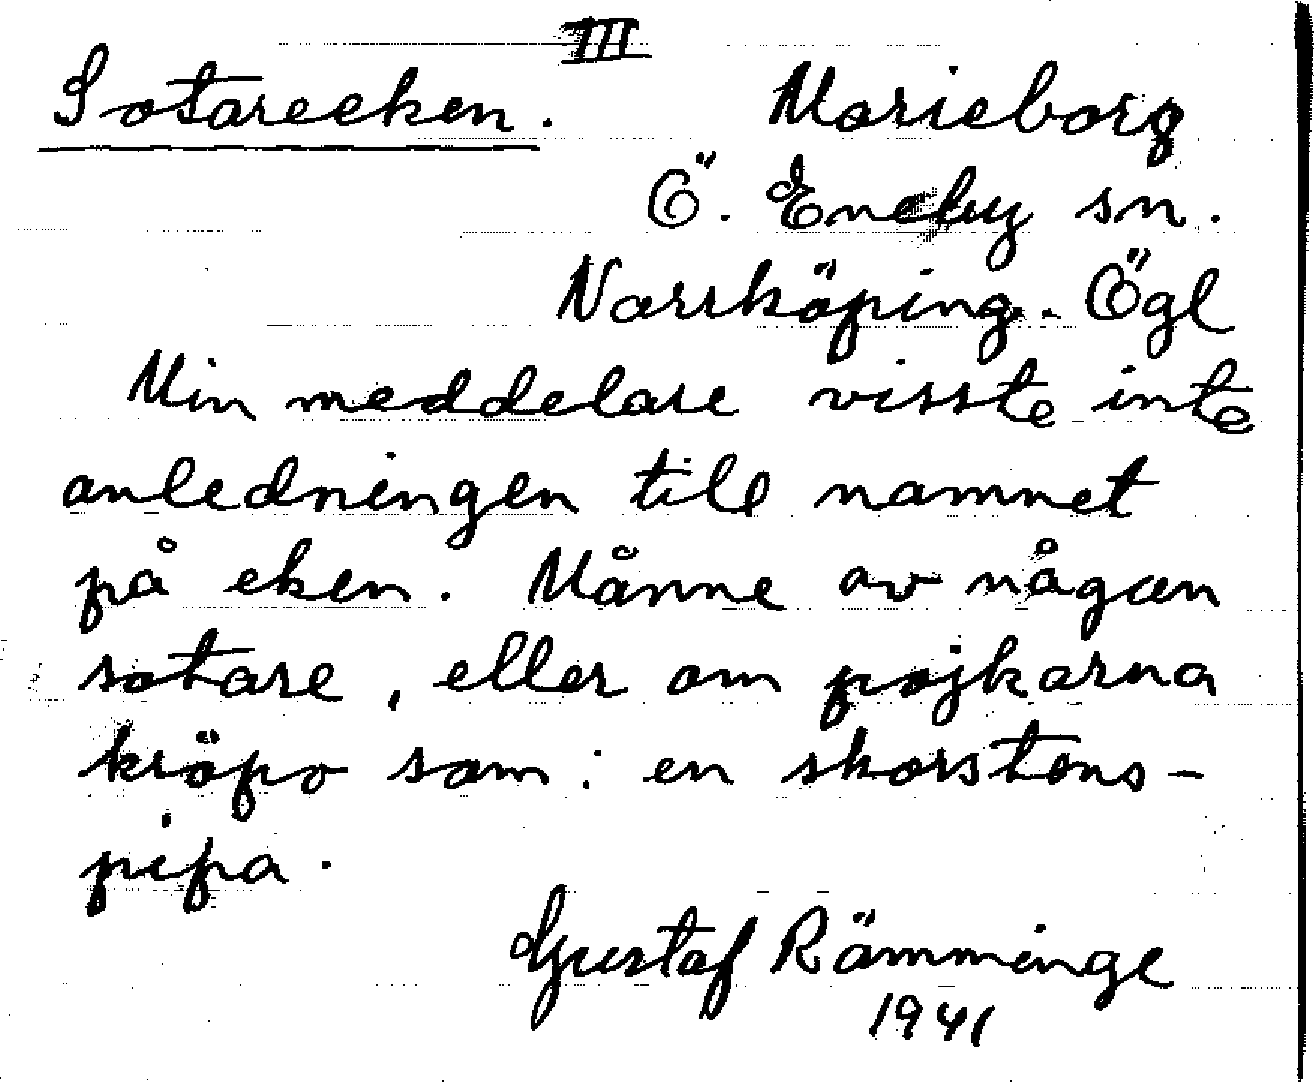 III
Sotareeken. Marieborg
Ö. Eneby sn.
Norrköping. Ögl
Min meddelare visste inte
anledningen till namnet
på eken. Månne av någon
sotare, eller om pojkarna
kröpo som i en skorstens-
pipa.
Gustaf Rämminge
1941